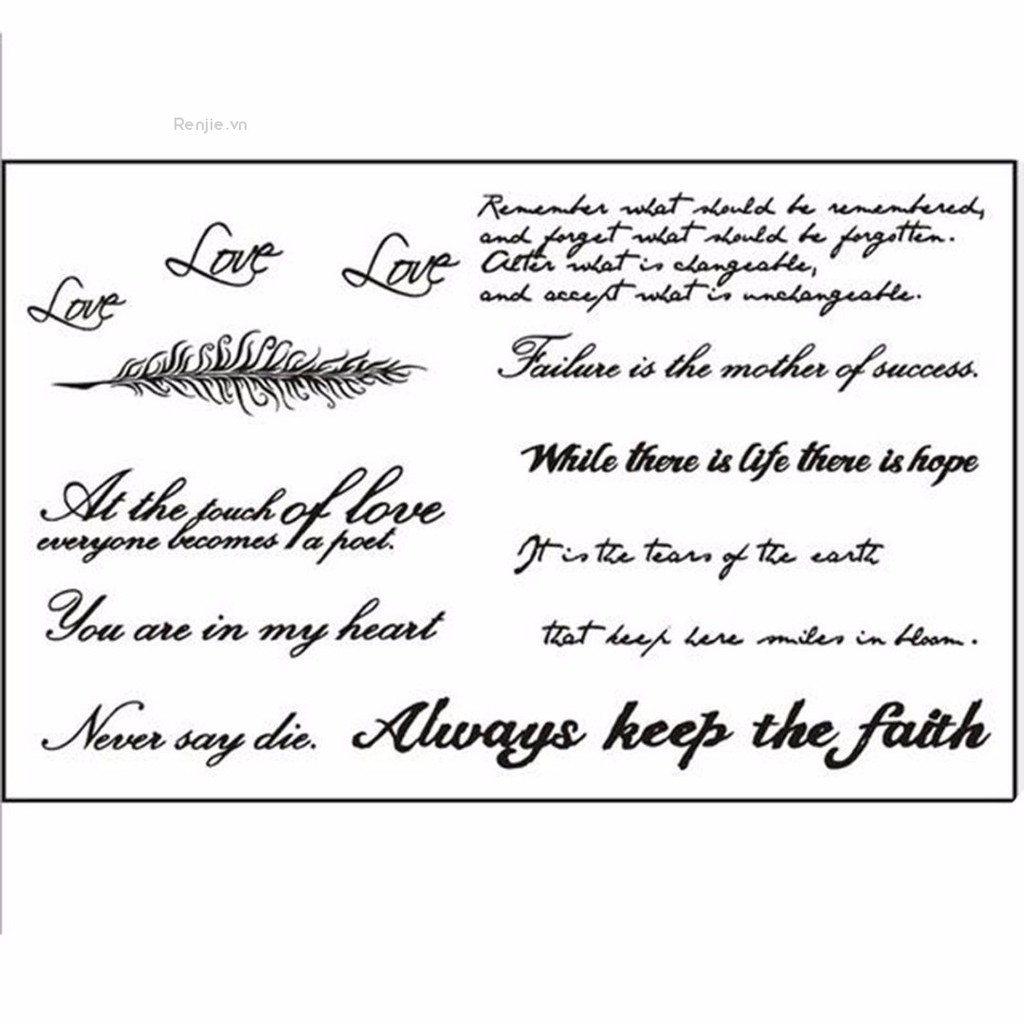 Renjie.vn
Love
Love
Love
Remember what should be remembered,
and forget what should be forgotten.
Alter what is changeable,
and accept what is unchangeable.
Failure is the mother of success.
While there is life there is hope
At the touch of love
everyone becomes a poet.
It is the tears of the earth
that keep here smiles in bloom.
You are in my heart
Never say die.
Always keep the faith